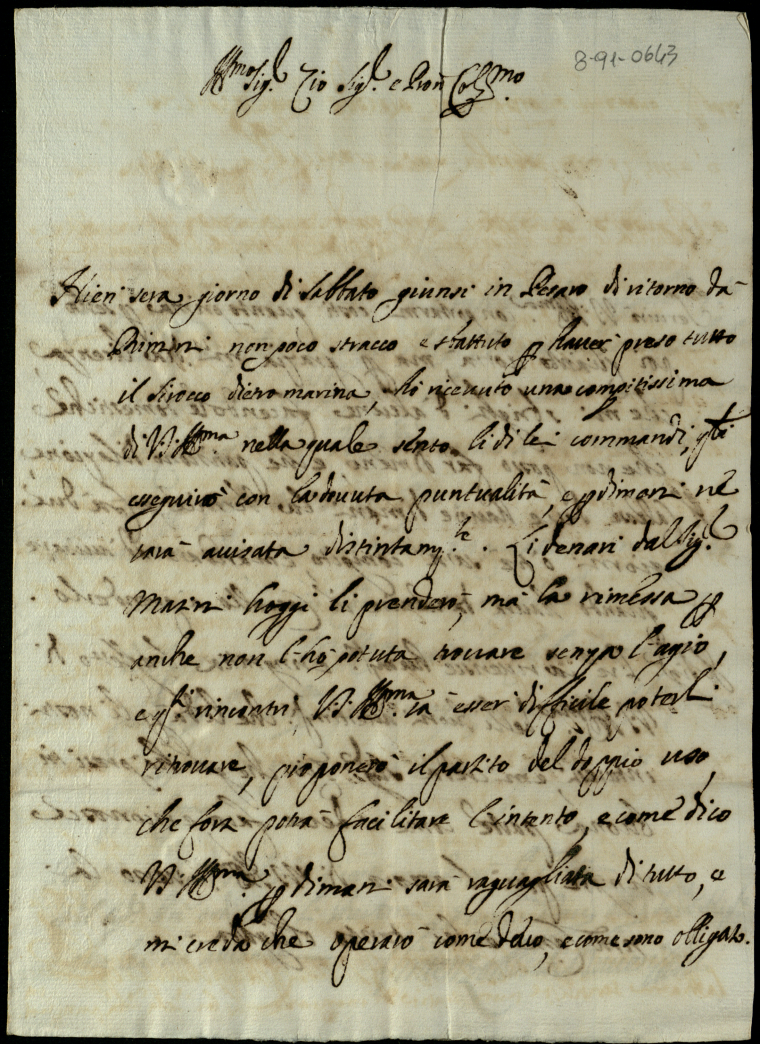 8-91-0643
Ill.mo Sig.r Zio Sig.r e Pron Col.mo
Hieri sera giorno di Sabbato giunsi in Pesaro di ritorno da
Rimini non poco stracco e sbattuto p haver preso tutto
il sirocco dietro marina, hò ricevuto una compitissima
di V.S. Ill.ma nella quale sento li di lei commandi, q.li
esseguirò con la dovuta puntualità, e p dimani ne
sarà avisata distintam.te. Li denari dal Sig.r
Masini hoggi li prenderò, mà la rimessa p
anche non l'hò potuta trovare senza l'agio,
e q.sti rincontri V.S. Ill.ma sà esser difficile poterli
ritrovare, proponerò il partito del doppio uso,
che forsi potrà facilitare l'intento, e come dico
V.S. Ill.ma p dimani sarà raguagliata di tutto, e
mi creda che operarò come devo, e come sono obligato.